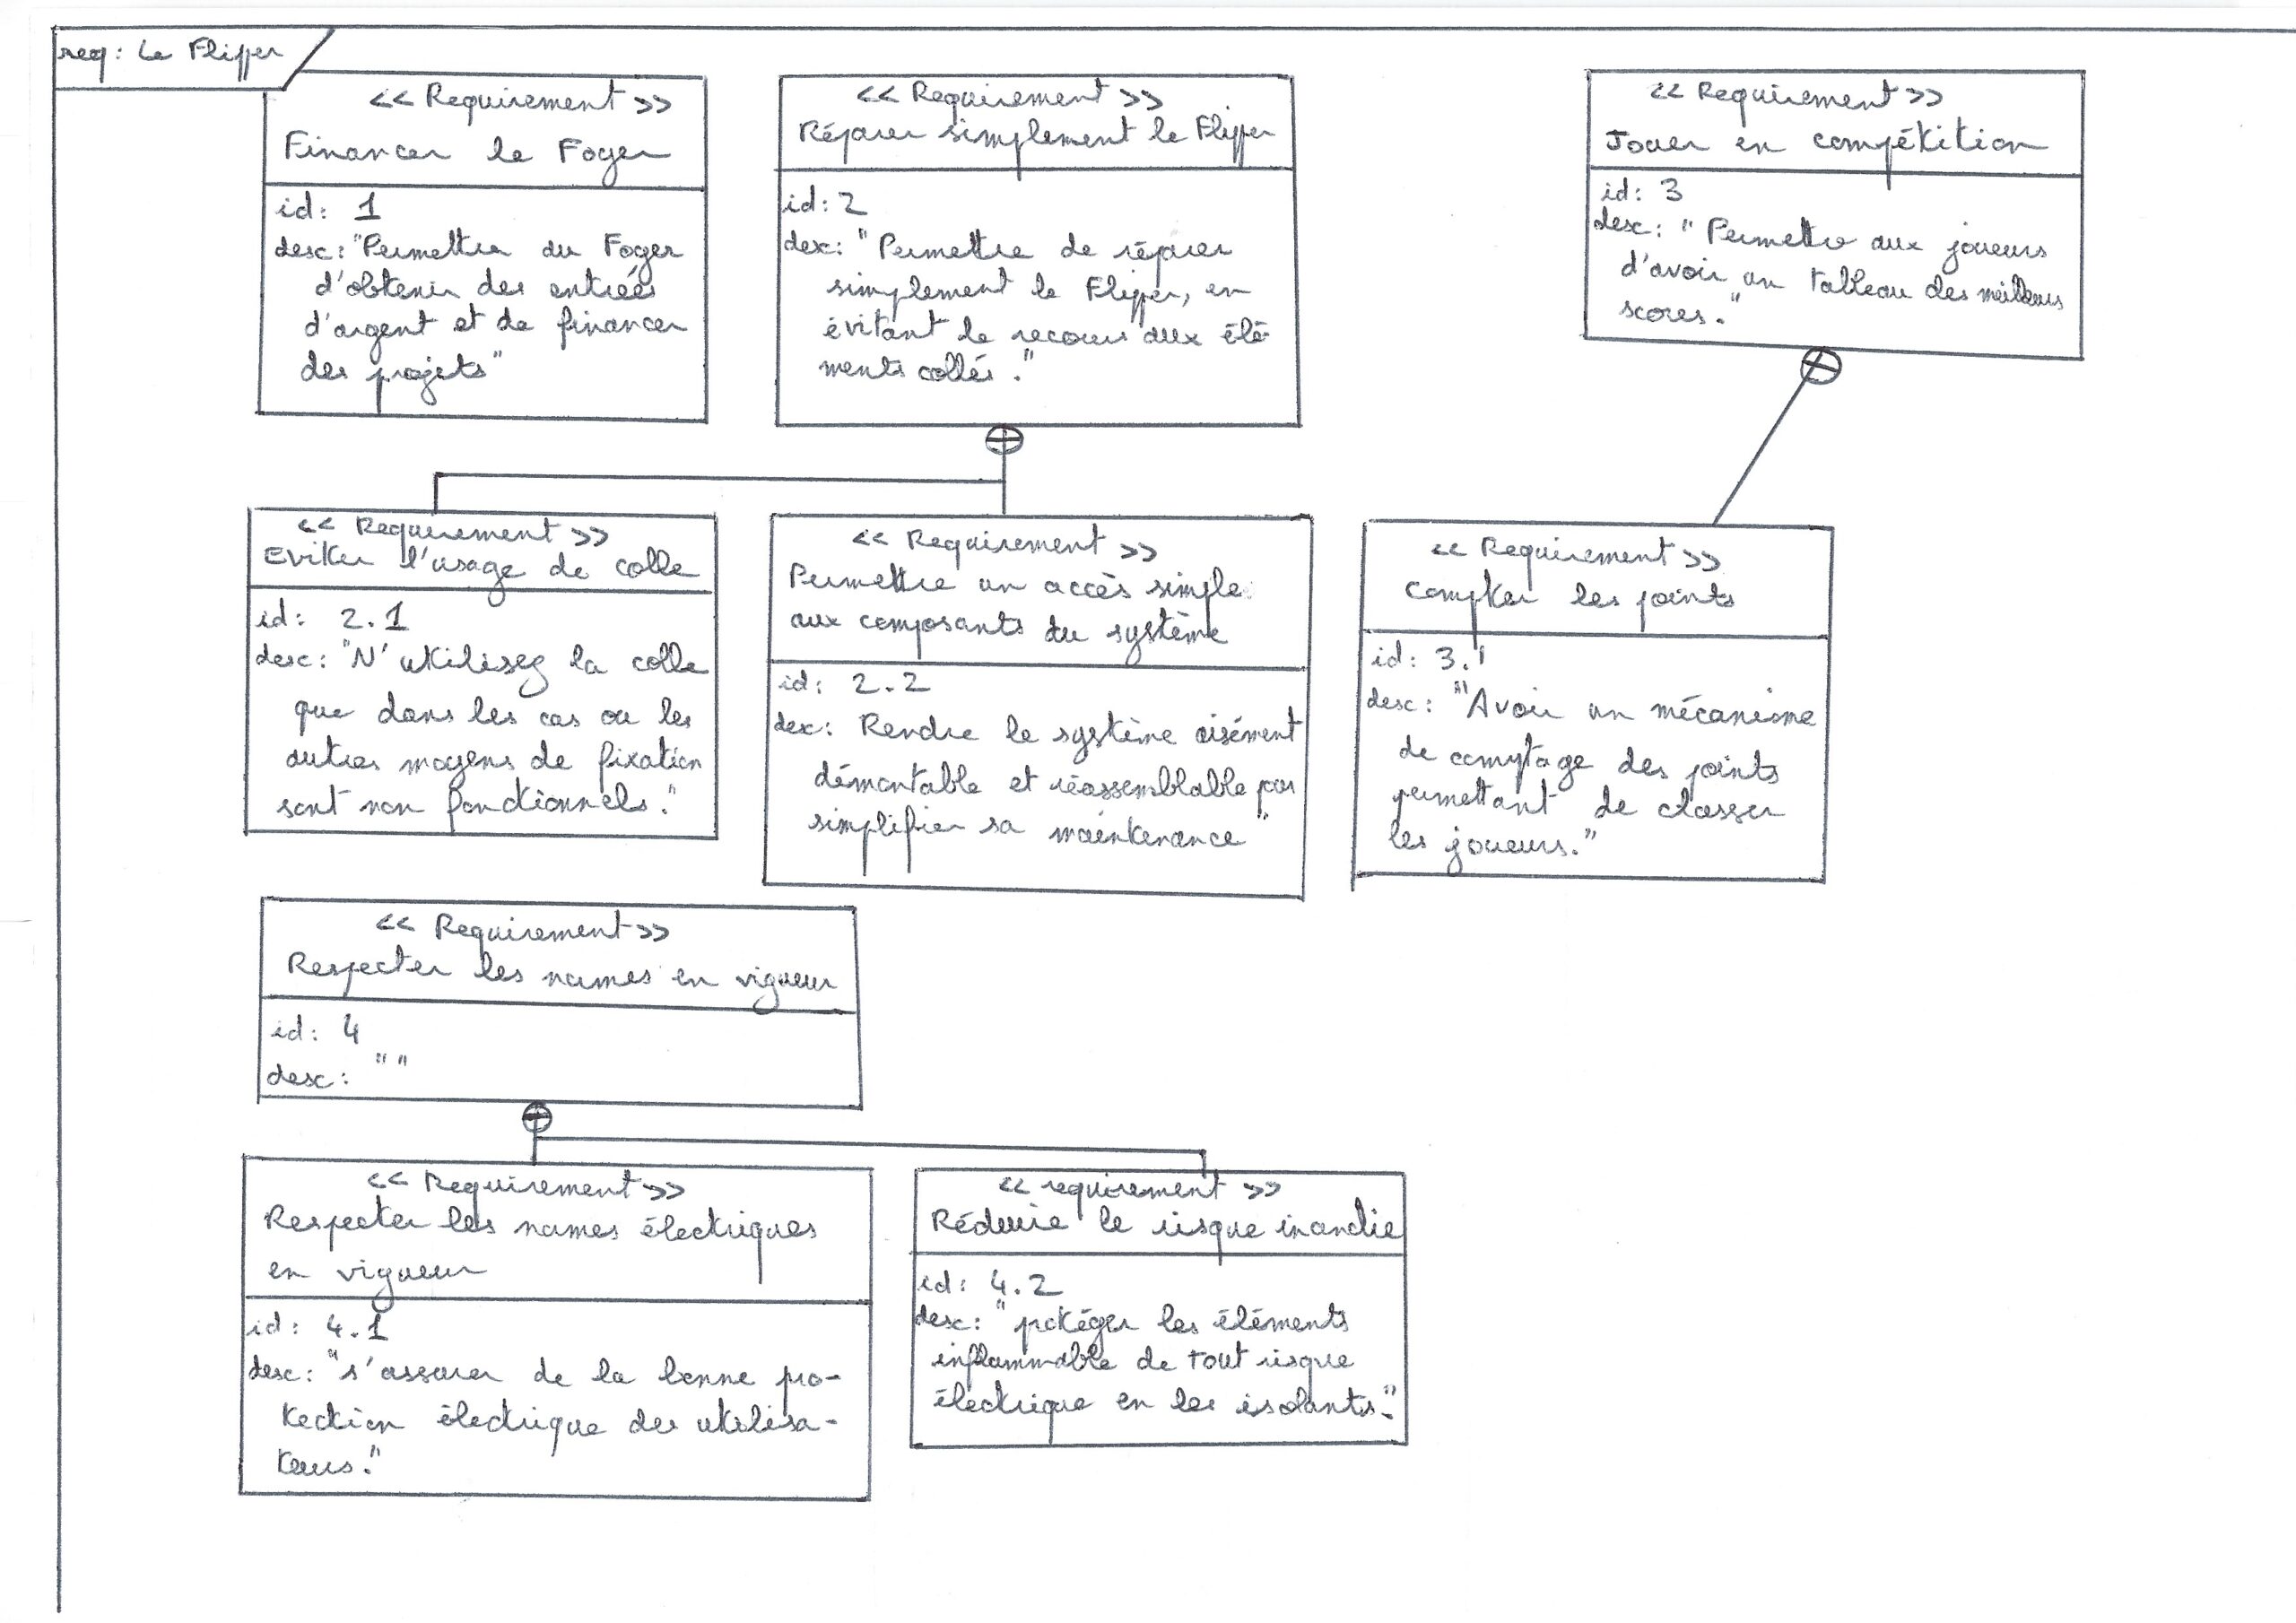 req: Le Flipper
<< Requirement >>
Financer le Foyer
id: 1
desc: "Permettre au Foyer
d'obtenir des entrées
d'argent et de financer
des projets"
<< Requirement >>
Réparer simplement le Flipper
id: 2
desc: " Permettre de réparer
simplement le Flipper, en
évitant le recours aux élé-
ments collés."
<< Requirement >>
Jouer en compétition
id: 3
desc: " Permettre aux joueurs
d'avoir un tableau des meilleurs
scores."
<< Requirement >>
Eviter l'usage de colle
id: 2.1
desc: "N'utilisez la colle
que dans les cas ou les
autres moyens de fixation
sont non fonctionnels."
<< Requirement >>
Permettre un accès simple
aux composants du système
id: 2.2
desc: Rendre le système aisément
démontable et réassemblable par
simplifier sa maintenance"
<< Requirement >>
Compter les points
id: 3.1
desc: "Avoir un mécanisme
de comptage des points
permettant de classer
les joueurs."
<< Requirement >>
Respecter les normes en vigueur
id: 4
desc: " "
<< Requirement >>
Respecter les normes électriques
en vigueur
id: 4.1
desc: "s'assurer de la bonne pro-
tection électrique des utilisa-
teurs."
<< requirement >>
Réduire le risque inandie
id: 4.2
desc: " potéger les éléments
inflammable de tout risque
électrique en les isolants."